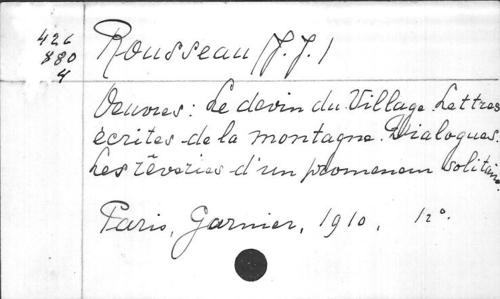 426
880
4
Rousseau (J. J.)
Oeuvres: Le devin du Village. Lettres
écrites de la montagne. Dialogues.
Les rêveries d'un promeneur solitaire.
Paris, Garnier, 1910. 12°.